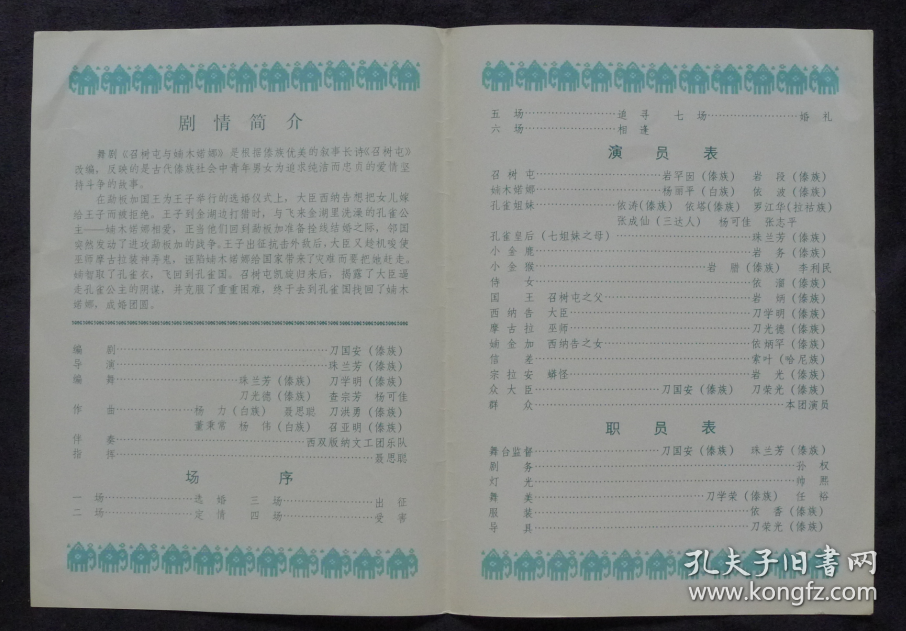 剧情简介
舞剧《召树屯与婻木诺娜》是根据傣族优美的叙事长诗《召树屯》
改编，反映的是古代傣族社会中青年男女为追求纯洁而忠贞的爱情坚
持斗争的故事。
在勐板加国王为王子举行的选婚仪式上，大臣西纳告想把女儿嫁
给王子而被拒绝。王子到金湖边打猎时，与飞来金湖里洗澡的孔雀公
主——婻木诺娜相爱，正当他们回到勐板加准备拴线结婚之际，邻国
突然发动了进攻勐板加的战争。王子出征抗击外敌后，大臣又趁机唆使
巫师摩古拉装神弄鬼，诬陷婻木诺娜给国家带来了灾难而要把她赶走。
婻智取了孔雀衣，飞回到孔雀国。召树屯凯旋归来后，揭露了大臣逼
走孔雀公主的阴谋，并克服了重重困难，终于去到孔雀国找回了婻木
诺娜，成婚团圆。
编剧……刀国安（傣族）
导演……珠兰芳（傣族）
编舞……珠兰芳（傣族） 刀学明（傣族）
刀光德（傣族） 查宗芳 杨可佳
作曲……杨力（白族） 聂思聪 刀洪勇（傣族）
董秉常 杨伟（白族） 召亚明（傣族）
伴奏……西双版纳文工团乐队
指挥……聂思聪
场序
一场……选婚 三场……出征
二场……定情 四场……受害
五场……追寻 七场……婚礼
六场……相逢
演员表
召树屯……岩罕囡（傣族） 岩段（傣族）
婻木诺娜……杨丽平（白族） 依波（傣族）
孔雀姐妹……依涛（傣族） 依塔（傣族） 罗江华（拉祜族）
张成仙（三达人） 杨可佳 张志平
孔雀皇后（七姐妹之母）……珠兰芳（傣族）
小金鹿……岩务（傣族）
小金猴……岩腊（傣族） 李利民
侍女……依溜（傣族）
国王 召树屯之父……岩炳（傣族）
西纳告 大臣……刀学明（傣族）
摩古拉 巫师……刀光德（傣族）
婻金加 西纳告之女……依炳罕（傣族）
信差……索叶（哈尼族）
宗拉安 蟒怪……岩光（傣族）
众大臣……刀国安（傣族） 刀荣光（傣族）
群众……本团演员
职员表
舞台监督……刀国安（傣族） 珠兰芳（傣族）
剧务……孙权
灯光……帅熙
舞美……刀学荣（傣族） 任裕
服装……依香（傣族）
导具……刀荣光（傣族）
孔夫子旧书网
www.kongfz.com